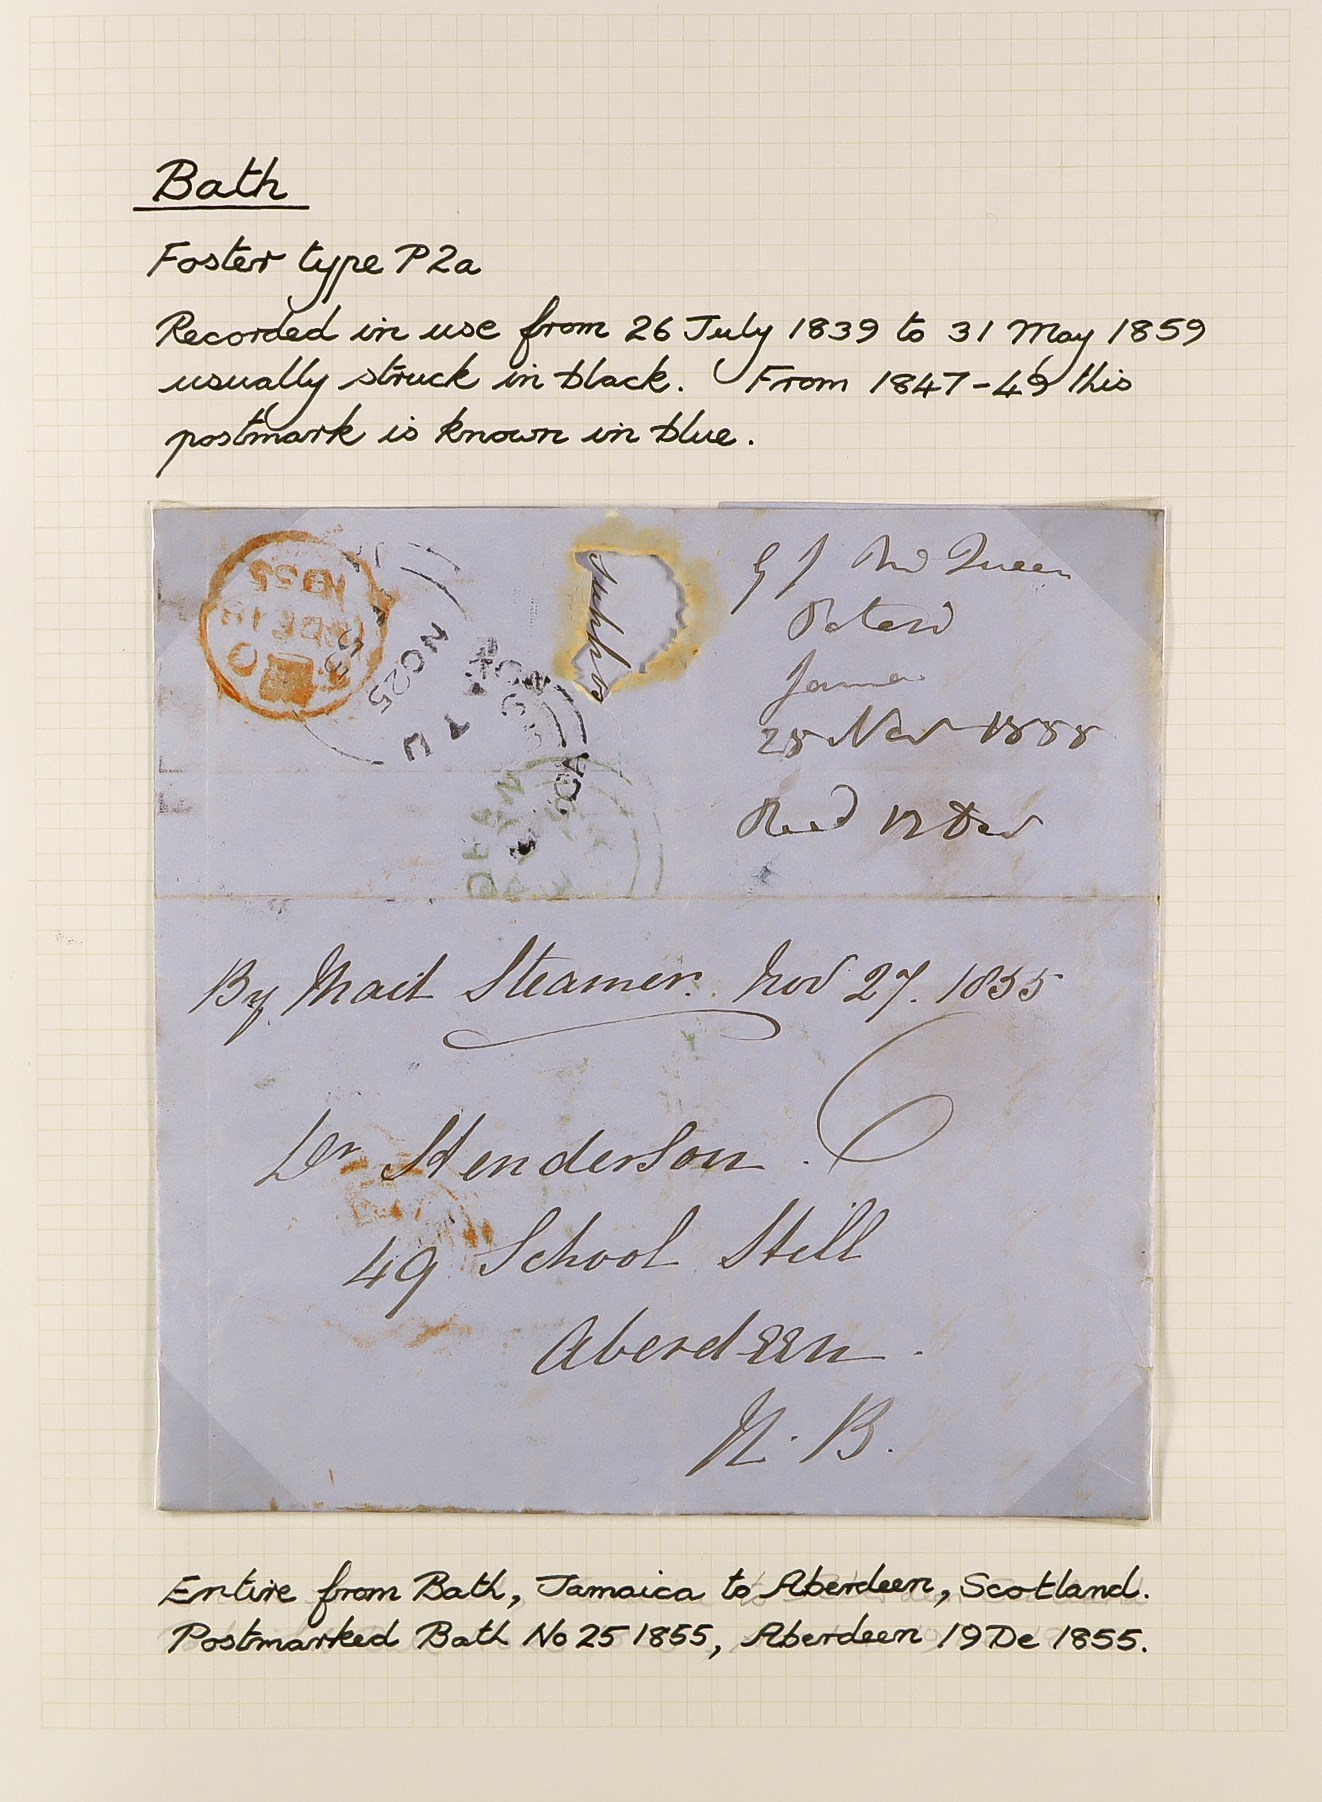 Bath
Foster type P2a
Recorded in use from 26 July 1839 to 31 May 1859
usually struck in black. From 1847-49 this
postmark is known in blue.
1855
DE 18
NO 25
G J McQueen
Jama
25 Nov 1855
Recd 19 Dec
By Mail Steamer. Nov 27. 1855
Dr Henderson.
49 School Hill
Aberdeen.
N. B.
Entire from Bath, Jamaica to Aberdeen, Scotland.
Postmarked Bath No 25 1855, Aberdeen 19 De 1855.